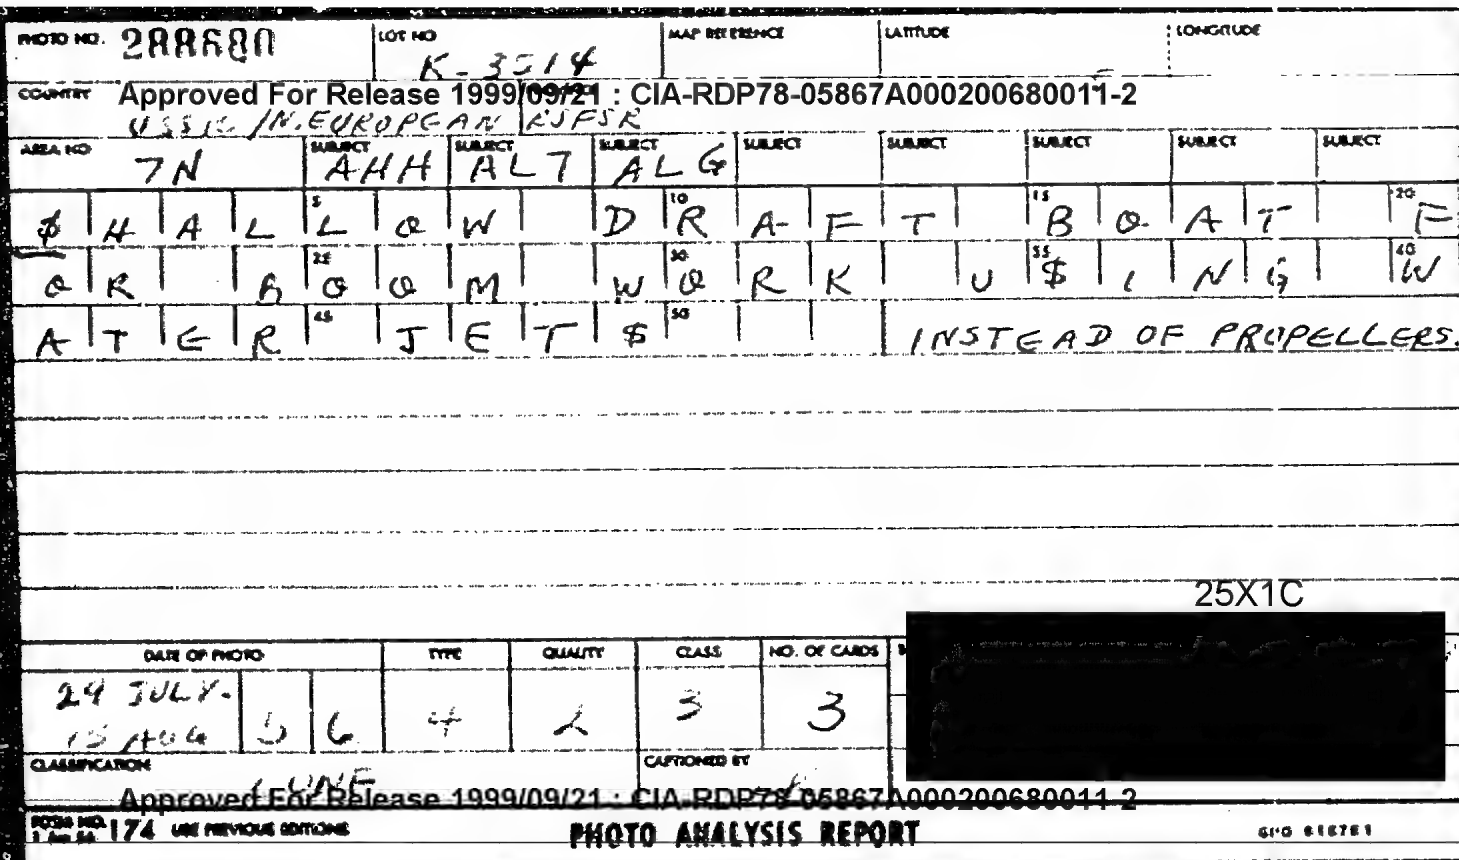 PHOTO NO. 288680 LOT NO K-3514 MAP REFERENCE LATITUDE LONGITUDE
COUNTRY Approved For Release 1999/09/21 : CIA-RDP78-05867A000200680011-2
USSR/N.EUROPEAN RSFSR
AREA NO 7N SUBJECT AHH SUBJECT ALT SUBJECT ALG SUBJECT SUBJECT SUBJECT SUBJECT SUBJECT
$HALLOW DRAFT BOAT F
OR BOOM WORK U$ING W
ATER JET$ INSTEAD OF PROPELLERS.
25X1C
DATE OF PHOTO TYPE QUALITY CLASS NO. OF CARDS
24 JULY- 15 AUG 56 4 2 3 3
CLASSIFICATION CAPTIONED BY
Approved For Release 1999/09/21 : CIA-RDP78-05867A000200680011-2
FORM NO. 174 USE PREVIOUS EDITIONS PHOTO ANALYSIS REPORT GPO